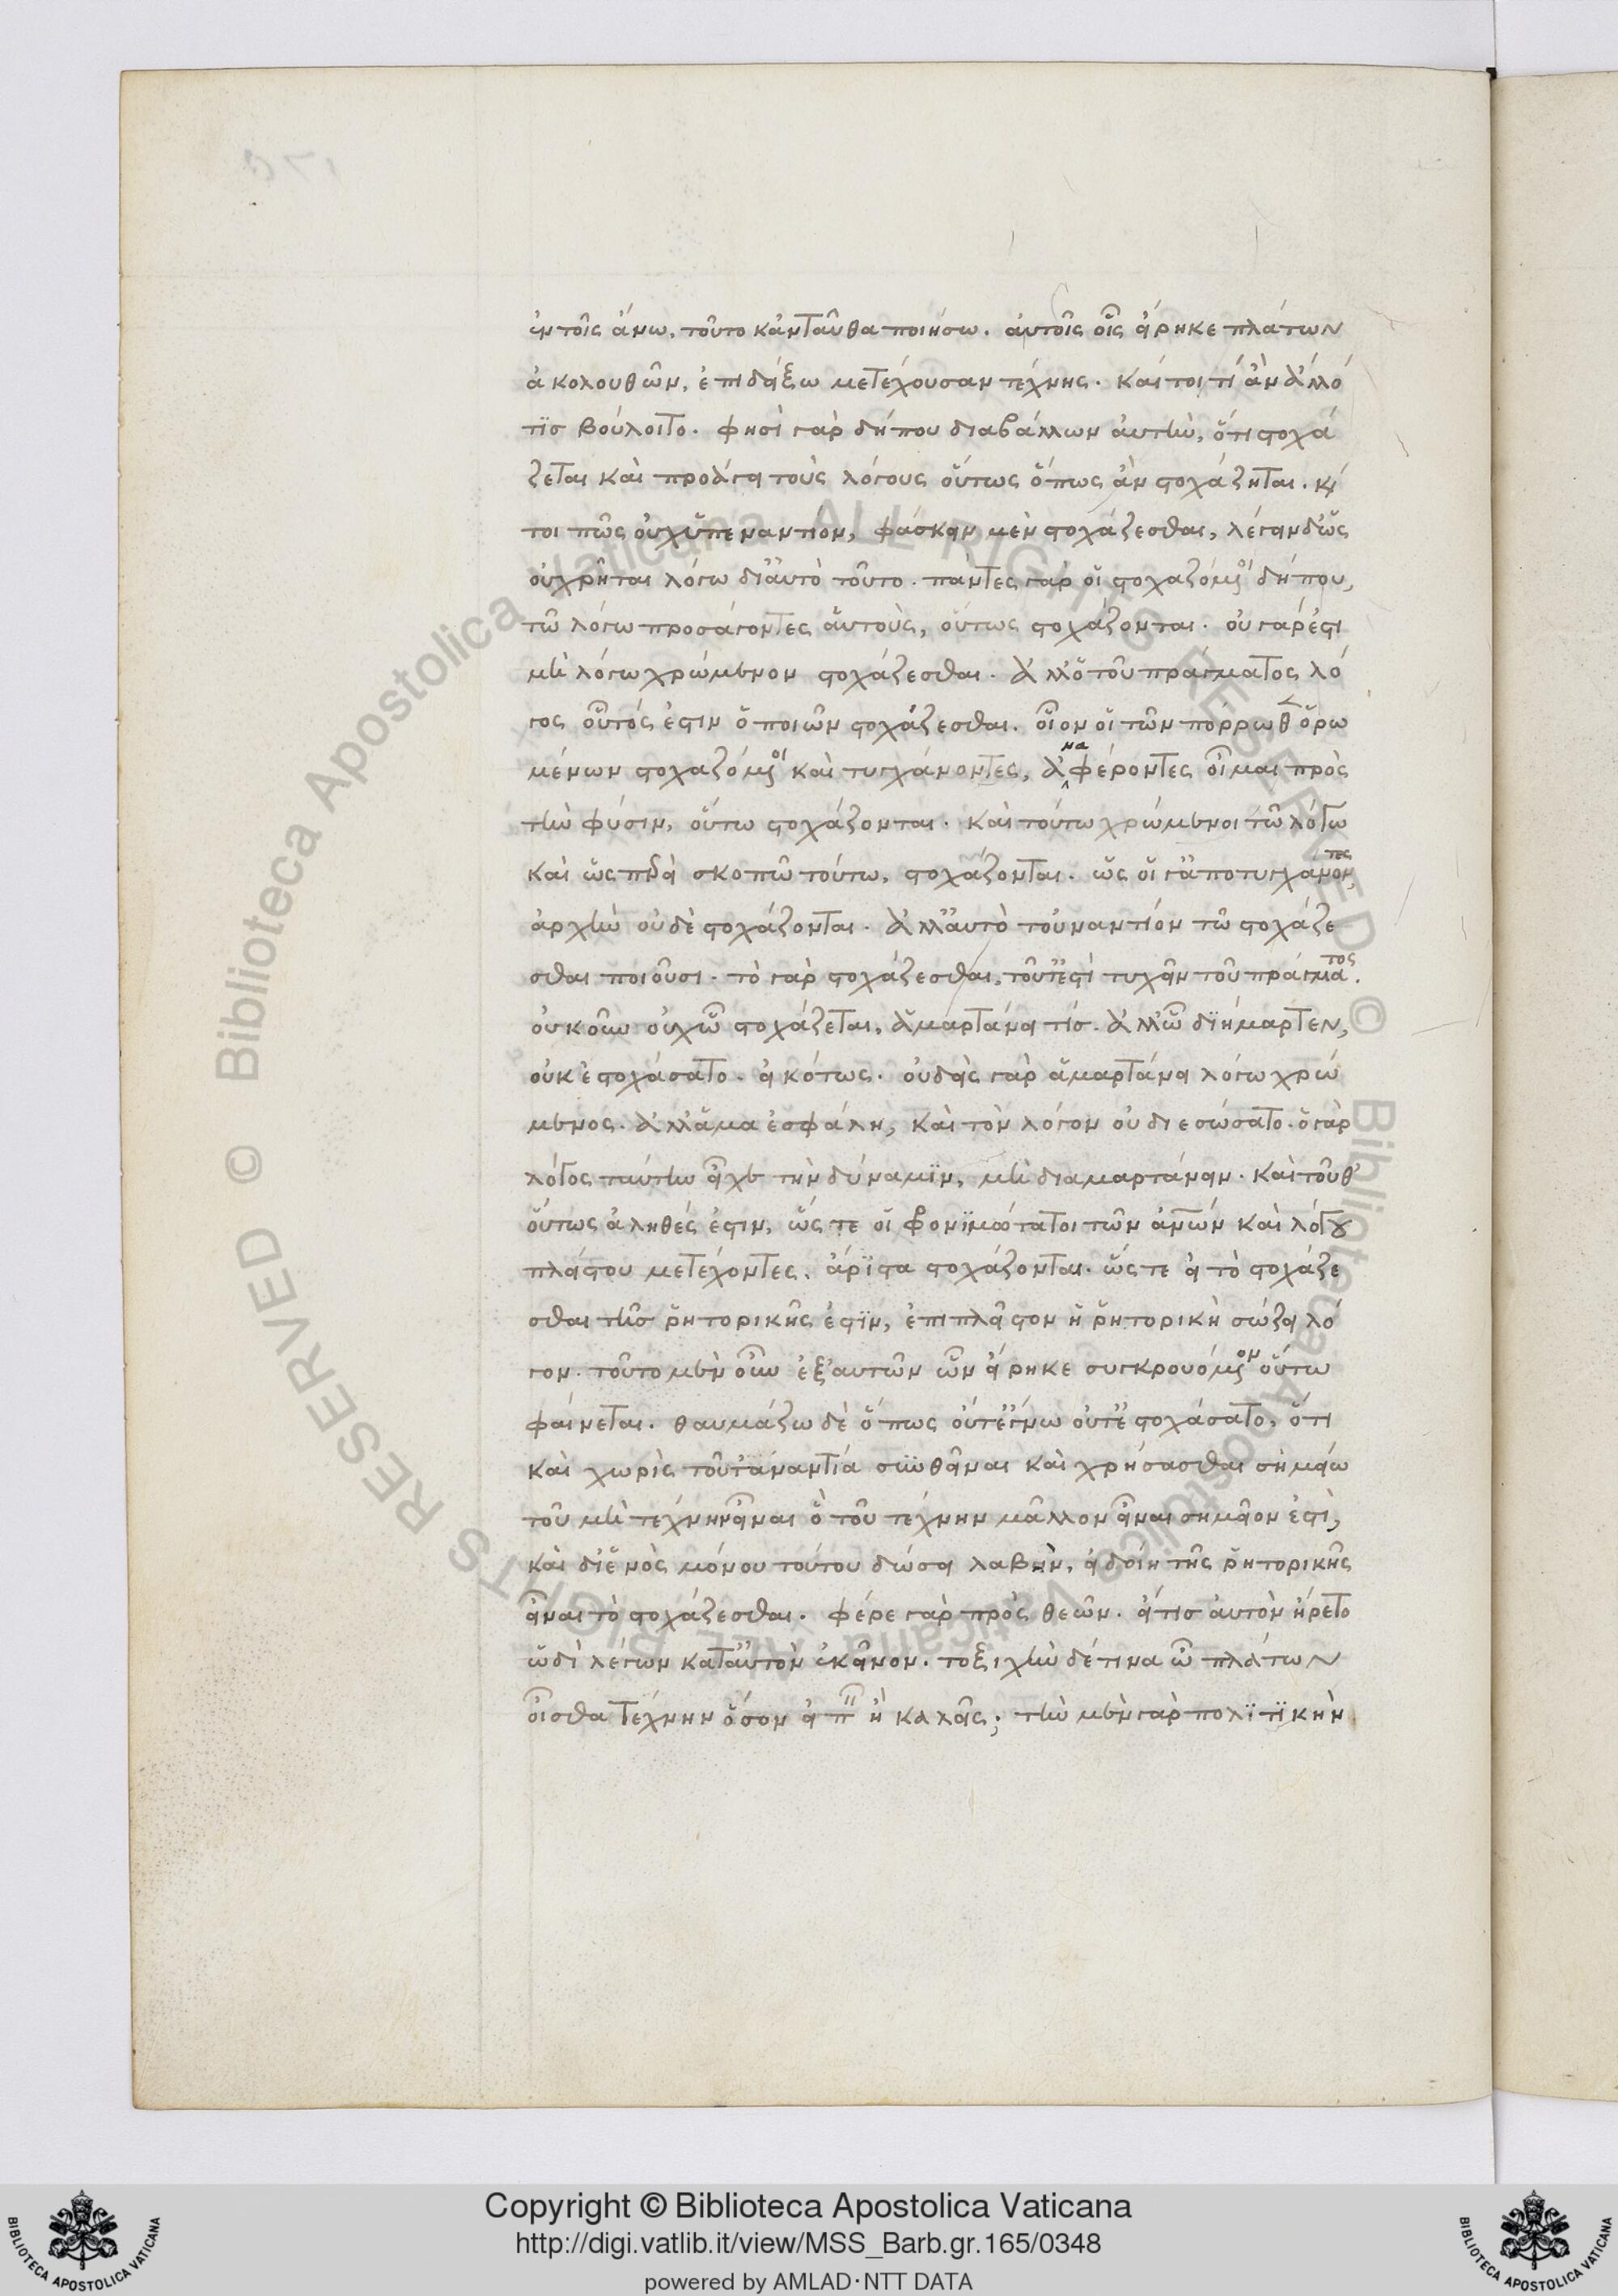 ἐν τοῖς ἄνω, τοῦτο κἀνταῦθα ποιήσω. αὐτοῖς οἷς εἴρηκε πλάτων
ἀκολουθῶν, ἐπιδείξω μετέχουσαν τέχνης. καίτοι τί ἂν ἄλλό
τις βούλοιτο. φησὶ γὰρ δήπου διαβάλλων αὐτὴν, ὅτι στοχά
ζεται καὶ προάγει τοὺς λόγους οὕτως ὅπως ἂν στοχάζηται. καί
τοι πῶς οὐχ ὑπεναντίον, φάσκειν μὲν στοχάζεσθαι, λέγειν δ' ὡς
οὐ χρῆται λόγω δι' αὐτὸ τοῦτο. πάντες γὰρ οἱ στοχαζόμενοι δήπου,
τῶ λόγω προσάγοντες αὑτοὺς, οὕτως στοχάζονται. οὐ γάρ ἐστι
μὴ λόγω χρώμενον στοχάζεσθαι. ἀλλ' ὁ τοῦ πράγματος λό
γος οὗτός ἐστιν ὁ ποιῶν στοχάζεσθαι. οἷον οἱ τῶν πόρρωθεν ὁρω
μένων στοχαζόμενοι καὶ τυγχάνοντες, ἀναφέροντες οἶμαι πρὸς
τὴν φύσιν, οὕτω στοχάζονται. καὶ τούτω χρώμενοι τῶ λόγω
καὶ ὡσπερεὶ σκοπῶ τούτω, στοχάζονται. ὡς οἵ γ' ἀποτυγχάνοντες,
ἀρχὴν οὐδὲ στοχάζονται. ἀλλ' αὐτὸ τοὐναντίον τῶ στοχάζε
σθαι ποιοῦσι. τὸ γὰρ στοχάζεσθαι, τοῦτ' ἐστὶ τυχεῖν τοῦ πράγματος.
οὐκοῦν οὐχ ὧν στοχάζεται, ἁμαρτάνει τίς. ἀλλ' ὧν διήμαρτεν,
οὐκ ἐστοχάσατο. εἰκότως. οὐδεὶς γὰρ ἁμαρτάνει λόγω χρώ
μενος. ἀλλ' ἅμα ἐσφάλη, καὶ τὸν λόγον οὐ διεσώσατο. ὁ γὰρ
λόγος ταύτην εἶχε τὴν δύναμιν, μὴ διαμαρτάνειν. καὶ τοῦθ'
οὕτως ἀληθές ἐστιν, ὥς τε οἱ φρονιμώτατοι τῶν ἀνθρώπων καὶ λόγου
πλείστου μετέχοντες, ἄριστα στοχάζονται. ὥς τε εἰ τὸ στοχάζε
σθαι τῆς ῥητορικῆς ἐστιν, ἐπιπλεῖστον ἡ ῥητορικὴ σώζει λό
γον. τοῦτο μὲν οὖν ἐξ αὐτῶν ὧν εἴρηκε συγκρουόμενον οὕτω
φαίνεται. θαυμάζω δὲ ὅπως οὔτ' ἔγνω οὔτ' ἐστοχάσατο, ὅτι
καὶ χωρὶς τοῦ τἀναντία συνθεῖναι καὶ χρήσασθαι σημείω
τοῦ μὴ τέχνην εἶναι ὃ τοῦ τέχνην μᾶλλον εἶναι σημεῖον ἐστὶ,
καὶ δι' ἑνὸς μόνου τούτου δώσει λαβὴν, εἰ δοίη τῆς ῥητορικῆς
εἶναι τὸ στοχάζεσθαι. φέρε γὰρ πρὸς θεῶν. εἴ τις αὐτὸν ἤρετο
ὡδὶ λέγων κατ' αὐτὸν ἐκεῖνον. τοξικὴν δέ τινα ὦ πλάτων
οἶσθα τέχνην ὅσον εἰπεῖν ἢ καλεῖς; τὴν μὲν γὰρ πολιτικὴν
Copyright © Biblioteca Apostolica Vaticana
http://digi.vatlib.it/view/MSS_Barb.gr.165/0348
powered by AMLAD·NTT DATA